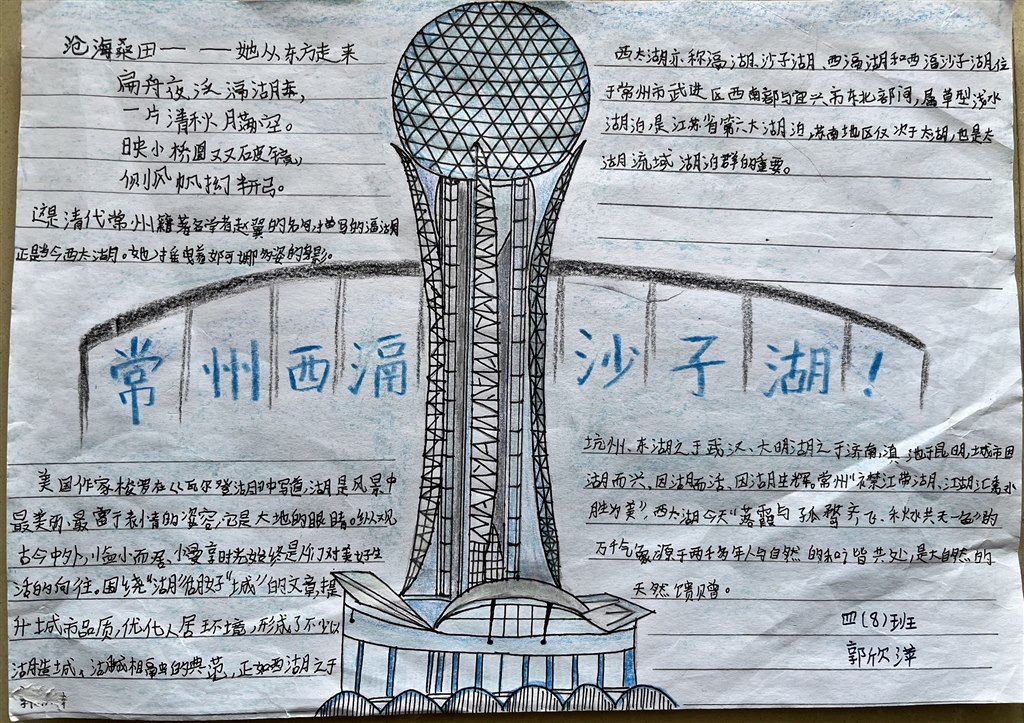 沧海桑田——她从东方走来
扁舟夜泛滆湖东，
一片清秋月满空。
映小桥圆又
侧风帆
这是清代常州籍著名学者赵翼的名句，描写的滆湖
正是当今西太湖。她摇曳着婀娜多姿的身影。
西太湖亦称滆湖、沙子湖、西滆湖和西滆沙子湖，位
于常州市武进区西南部与宜兴市东北部间，属草型浅水
湖泊，是江苏省第六大湖泊，苏南地区仅次于太湖，也是太
湖流域湖泊群的重要。
常州西滆沙子湖！
美国作家梭罗在《瓦尔登湖》中写道，湖是风景中
最美的、最富于表情的姿容，它是大地的眼睛。纵观
古今中外，临小而居、慢享时光始终是人们对美好生
活的向往。围绕"湖"做好"城"的文章，提
升城市品质，优化人居环境，形成了不少以
湖造城、湖城相融的典范，正如西湖之于
坑州、东湖之于武汉、大明湖之于济南，滇池于昆明，城市因
湖而兴、因湖而活、因湖生辉。常州"襟江带湖、江湖汇秀水
胜为美"，西太湖今天"落霞与孤鹜齐飞、秋水共天一色"的
万千气象源于两千多年人与自然的和谐共处，是大自然的
天然馈赠。
四（8）班
郭欣萍